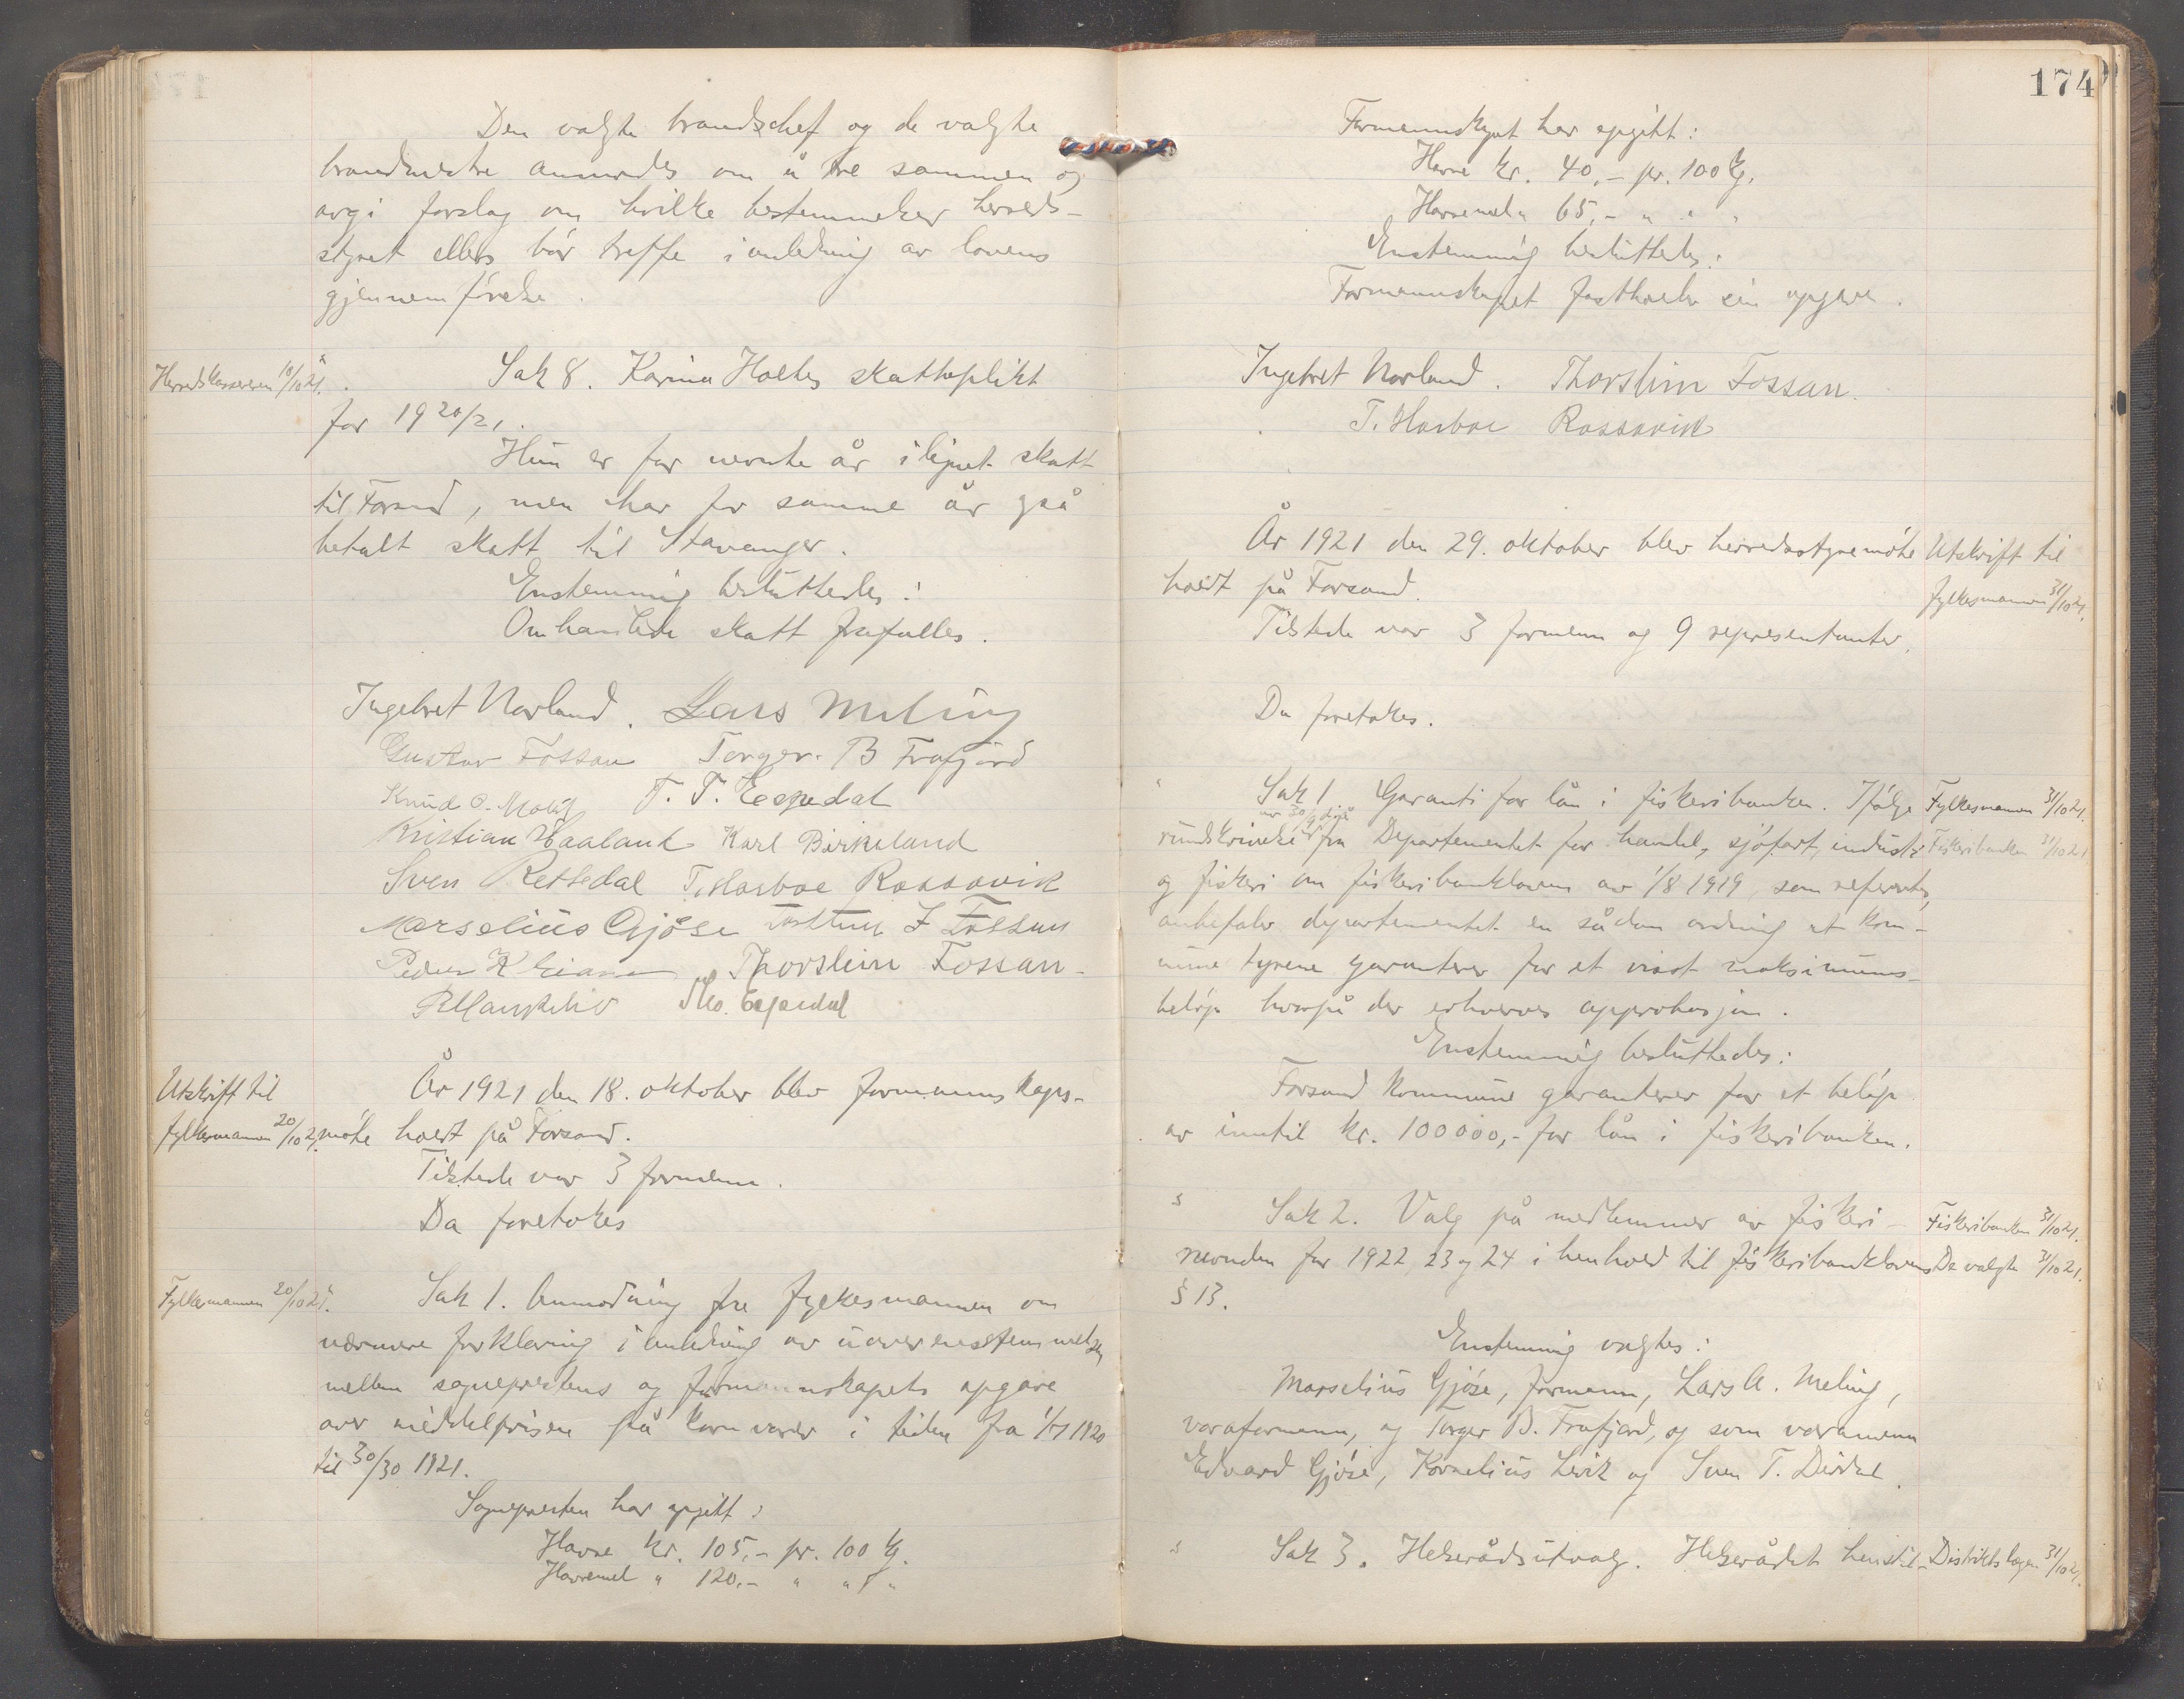 Den valgte brandschef og de valgte
brandmestre anmodes om å tre sammen og
avgi forslag om hvilke bestemmelser herreds-
styret ellers bör treffe i anledning av lovens
gjennemförelse.
Herredskassereren 10/10 21.
Sak 8. Karina Holtes skatteplikt
for 1920/21.
Hun er for nevnte år ilignet skatt
til Forsand, men har for samme år også
betalt skatt til Stavanger.
Enstemmig besluttedes:
Omhandlede skatt frafalles.
Ingebret Norland. Lars Meling
Gustav Fossan Torger B Frafjord
Knud O. T. T. Espedal
Kristian Haaland Karl Birkeland
Sven Rettedal T. Hasboe Rossavik
Marselius Gjöse Fossan
Peder K Thorstein Fossan
Tho. Espedal
Utskrift til
fylkesmannen 20/10 21.
År 1921 den 18. oktober blev formannskaps-
möte holdt på Forsand.
Tilstede var 3 formenn.
Da foretokes
Fylkesmannen 20/10 21.
Sak 1. Anmodning fra fylkesmannen om
nærmere forklaring i anledning av uoverensstemmelsen
mellem sogneprestens og formannskapets opgave
over middelprisen på kornvarer i tiden fra 1/7 1920
til 30/30 1921.
Sognepresten har opgitt:
Havre kr. 105,- pr. 100 kg.
Havremel " 120,- " " "
174
Formennskapet har opgitt:
Havre kr. 40,- pr. 100 kg.
Havremel " 65,- " " "
Enstemmig besluttedes:
Formennskapet fastholder sin opgave.
Ingebret Norland. Thorstein Fossan.
T. Hasboe Rossavik
År 1921 den 29. oktober blev herredsstyremöte
holdt på Forsand.
Utskrift til
fylkesmannen 31/10 21.
Tilstede var 3 formenn og 9 representanter.
Da foretokes.
Sak 1. Garanti for lån i fiskeribanken. Ifölge
Fylkesmannen 31/10 21.
av 30/9
rundskrivelse fra Departementet for handel, sjöfart, industri
Fiskeribanken 31/10 21.
og fiskeri om fiskeribankloven av 1/8 1919, som refertes,
anbefaler departementet en sådan ordning at kom-
munestyrene garanterer for et visst maksimums-
belöp hvorpå der erhverves approbasjon.
Enstemmig besluttedes:
Forsand kommune garanterer for et belöp
av inntil kr. 100000,- for lån i fiskeribanken.
Sak 2. Valg på medlemmer av fiskeri-
Fiskeribanken 31/10 21.
nevnden for 1922, 23 og 24 i henhold til fiskeribanklovens
De valgte 31/10 21.
§ 13.
Enstemmig valgtes:
Marselius Gjöse, formann, Lars A. Meling,
varaformann, og Torger B. Frafjord, og som varamenn
Edvard Gjöse, Kornelius Levik og Sven T. Dirdal.
Sak 3. Helserådsutvalg. Helserådet henstil-
Distriktslægen 31/10 21.